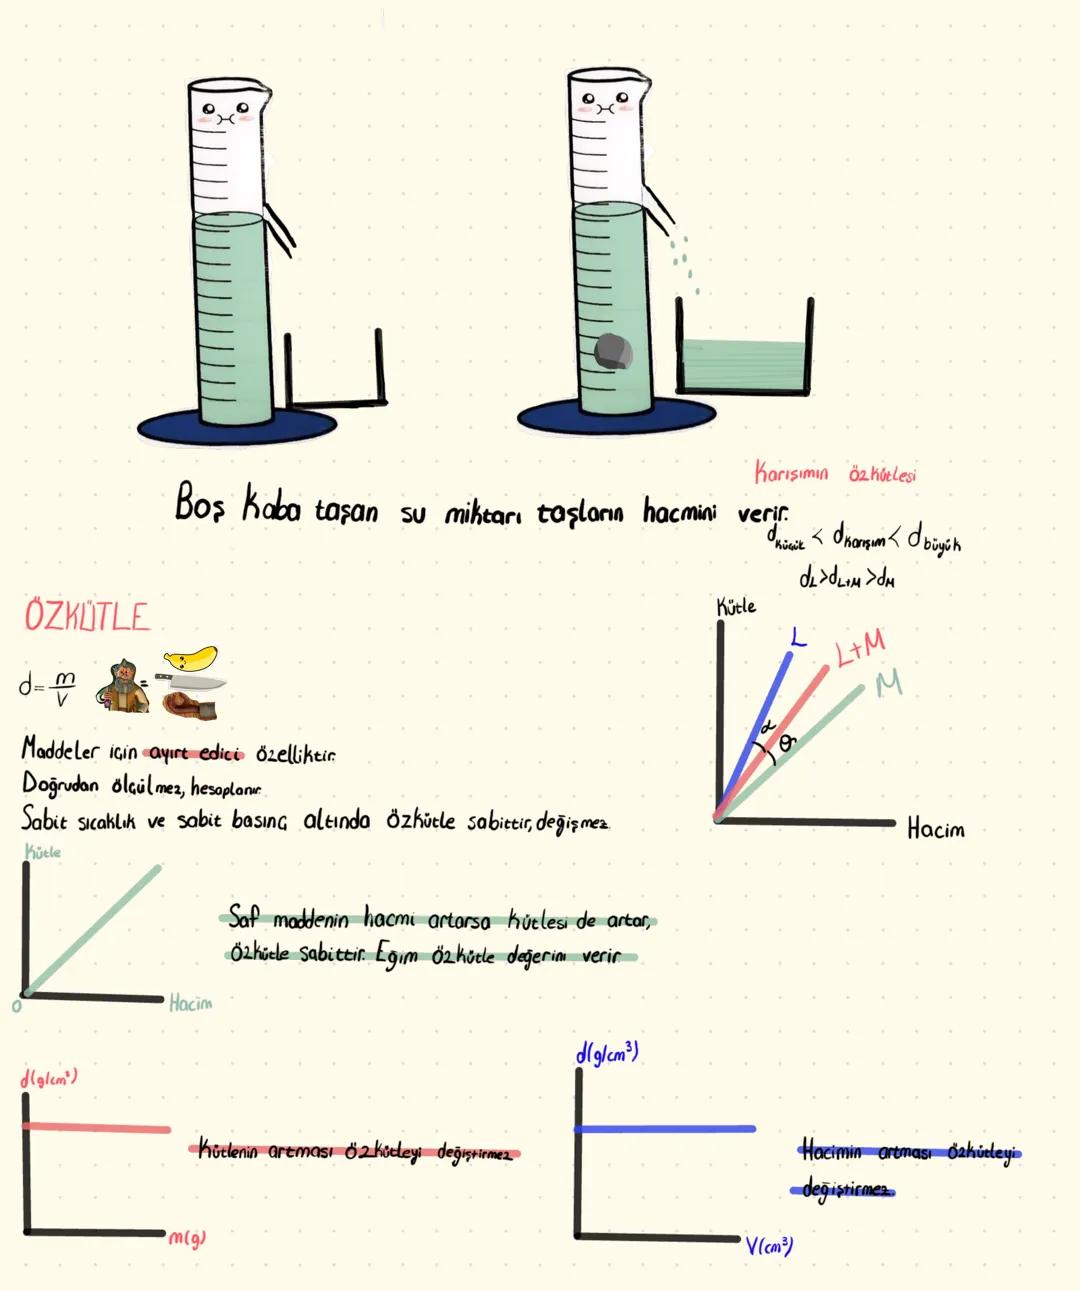 Karışımın özkütlesi
Boş kaba taşan su miktarı taşların hacmini verir.
dküçük < dkarışım < dbüyük
dL>dL+M>dM
ÖZKÜTLE
d=m/V
=
Maddeler için ayırt edici özelliktir.
Doğrudan ölçülmez, hesaplanır
Sabit sıcaklık ve sabit basınç altında özkütle sabittir, değişmez.
Kütle
L
L+M
M
α
θ
Hacim
Kütle
0
Hacim
Saf maddenin hacmi artarsa kütlesi de artar,
özkütle sabittir. Eğim özkütle değerini verir
d(g/cm³)
Kütlenin artması özkütleyi değiştirmez
m(g)
d(g/cm³)
Hacimin artması özkütleyi
değiştirmez
V(cm³)